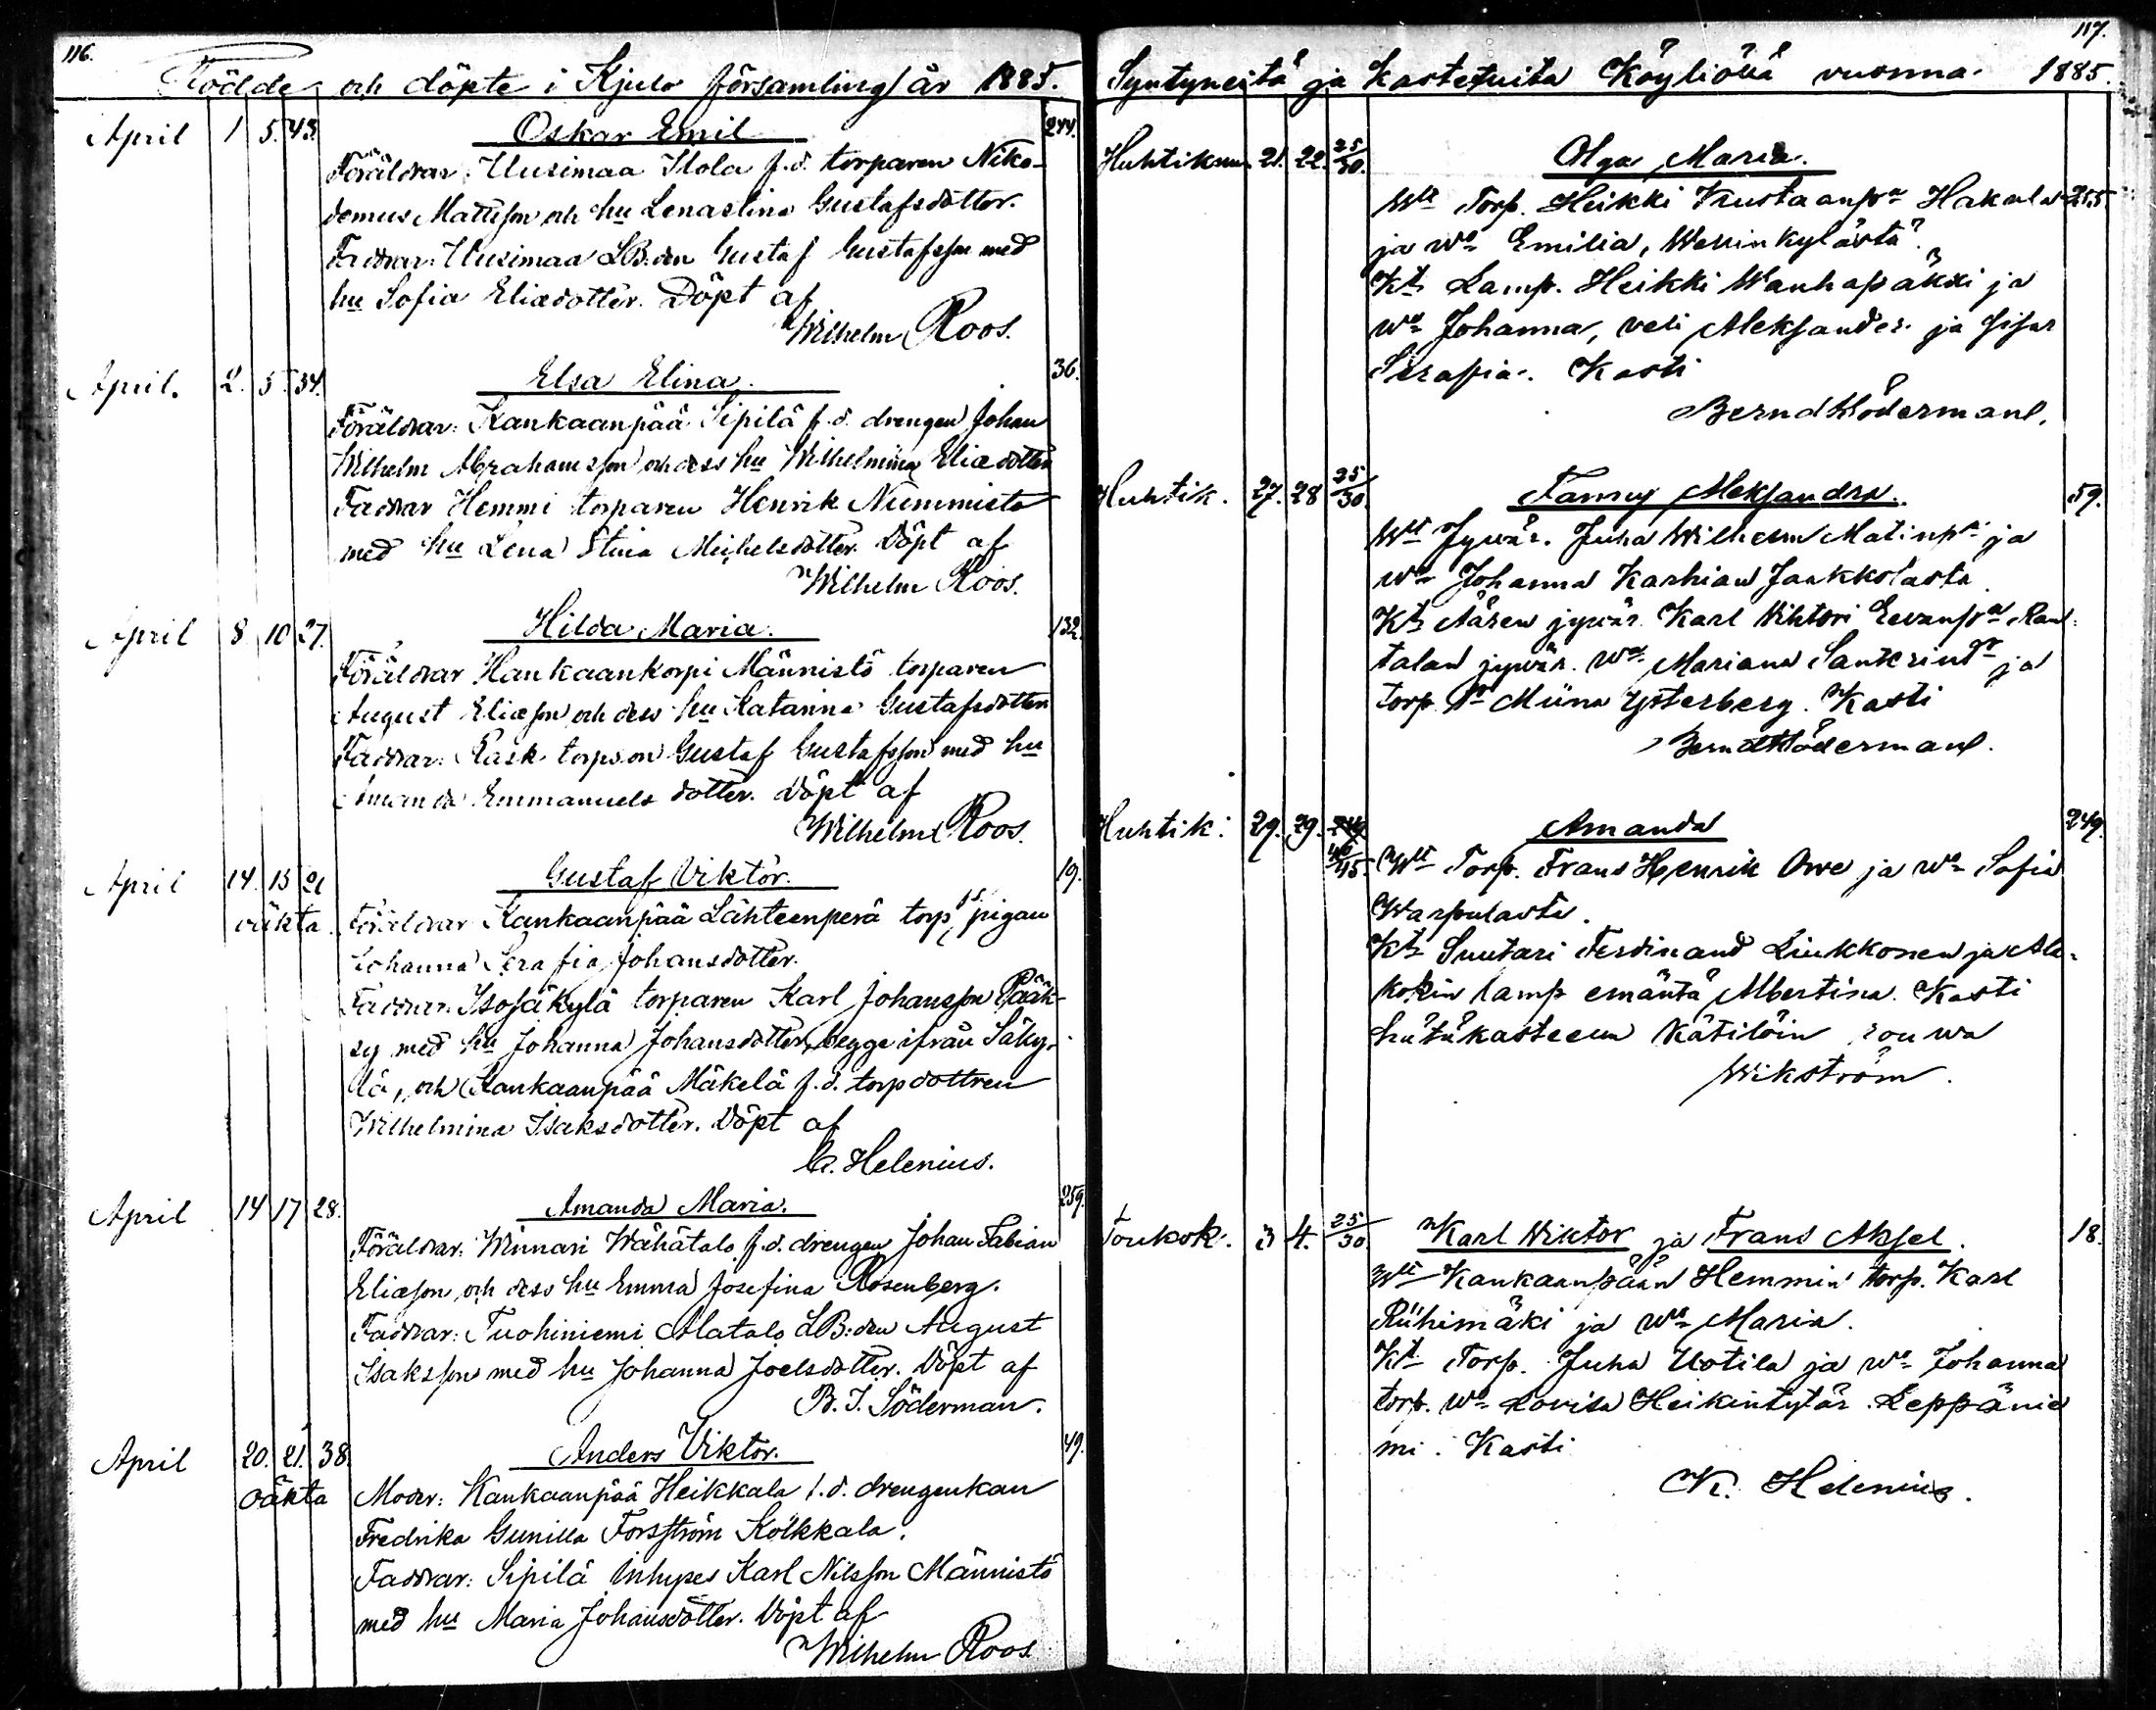 116.
Födde och döpte i Kjulo församling år 1885.
April 1 5. 43. Oskar Emil 244.
Föräldrar: Uusimaa Ilola f.d. torparen Niko-
demus Mattsson och hu Lenastina Gustafsdotter.
Faddrar: Uusimaa LB:den Gustaf Gustafsson med
hu Sofia Eliædotter. Döpt af
Wilhelm Roos.
April. 2. 5. 34. Elsa Elina. 36.
Föräldrar: Kankaanpää Sipilä f.d. drengen Johan
Wilhelm Abrahamsson och dess hu Wilhelmina Eliædotter
Faddrar Hemmi torparen Henrik Nummisto
med hu Lena Stina Michelsdotter. Döpt af
Wilhelm Roos.
April 8 10 27. Hilda Maria. 132.
Föräldrar Hankaankorpi Männistö torparen
August Eliæson och dess hu Katarina Gustafsdotter
Faddrar: Rask torps.on Gustaf Gustafsson med hu
Amanda Emmanuels dotter. Döpt af
Wilhelm Roos.
April 14. 15 21 Gustaf Viktor. 19.
oäkta. Föräldrar Kankaanpää Lähteenperä torp pigan
Johanna Serafia Johansdotter.
Faddrar: Isosäkylä torparen Karl Johansson Pääk-
sy med hu Johanna Johansdotter, begge ifrån Säky-
lä, och Kankaanpää Mäkelä f.d. torpdottren
Wilhelmina Isaksdotter. Döpt af
K. Helenius.
April 14 17 28. Amanda Maria. 259.
Föräldrar: Winnari Wähätalo f.d. drengen Johan Fabian
Eliæson och dess hu Emma Josefina Rosenberg.
Faddrar: Tuohiniemi Alatalo LB:den August
Isaksson med hu Johanna Joelsdotter. Döpt af
B. I. Söderman.
April 20. 21. 38. Anders Viktor. 49.
oäkta Moder: Kankaanpää Heikkala f.d. drengenkan
Fredrika Gunilla Forsström Kolkkala.
Faddrar: Sipilä inhyses Karl Nilsson Männistö
med hu Maria Johansdotter. Döpt af
Wilhelm Roos
117.
Syntyneitä ja Kastetuita Köyliössä vuonna 1885.
Huhtikuu 21. 22. 25/30. Olga Maria.
Wt Torp. Heikki Kustaanpa Hakala 255.
ja wo Emilia, Wessinkylästä.
Kt Lamp. Heikki Wanhapäkki ja
wo Johanna, veli Aleksander ja sisar
Serafia. Kasti
Bernd Södermanl.
Huhtik. 27. 28 25/30. Fanny Aleksandra. 59.
Wt Jywär. Juha Wilhelm Matinpa ja
wo Johanna Karhian Jaakkolasta
Kt Äären jywär. Karl Wihtori Eevanpa Ran-
talan jywär. wo Mariana Santerint ja
torp. Miina Ysterberg. Kasti
Bernd Södermanl.
Huhtik. 29. 29. 249 40/45. Amanda 249.
Wt Torp. Frans Henrik Orre ja wo Sofia
Warpulasta.
Kt Suutari Ferdinand Liukkonen ja Ala-
kokin lamp emäntä Albertina. Kasti
hätäkasteen Kätilöin rouwa
Wikström.
Toukok. 3 4. 25/30. Karl Wiktor ja Frans Aksel. 18.
Wt Kankaanpään Hemmin torp. Karl
Riihimäki ja wo Maria.
Kt Torp. Juha Uotila ja wo Johanna
torp. wo Lovisa Heikintytär Leppänie
mi. Kasti
K. Helenius.